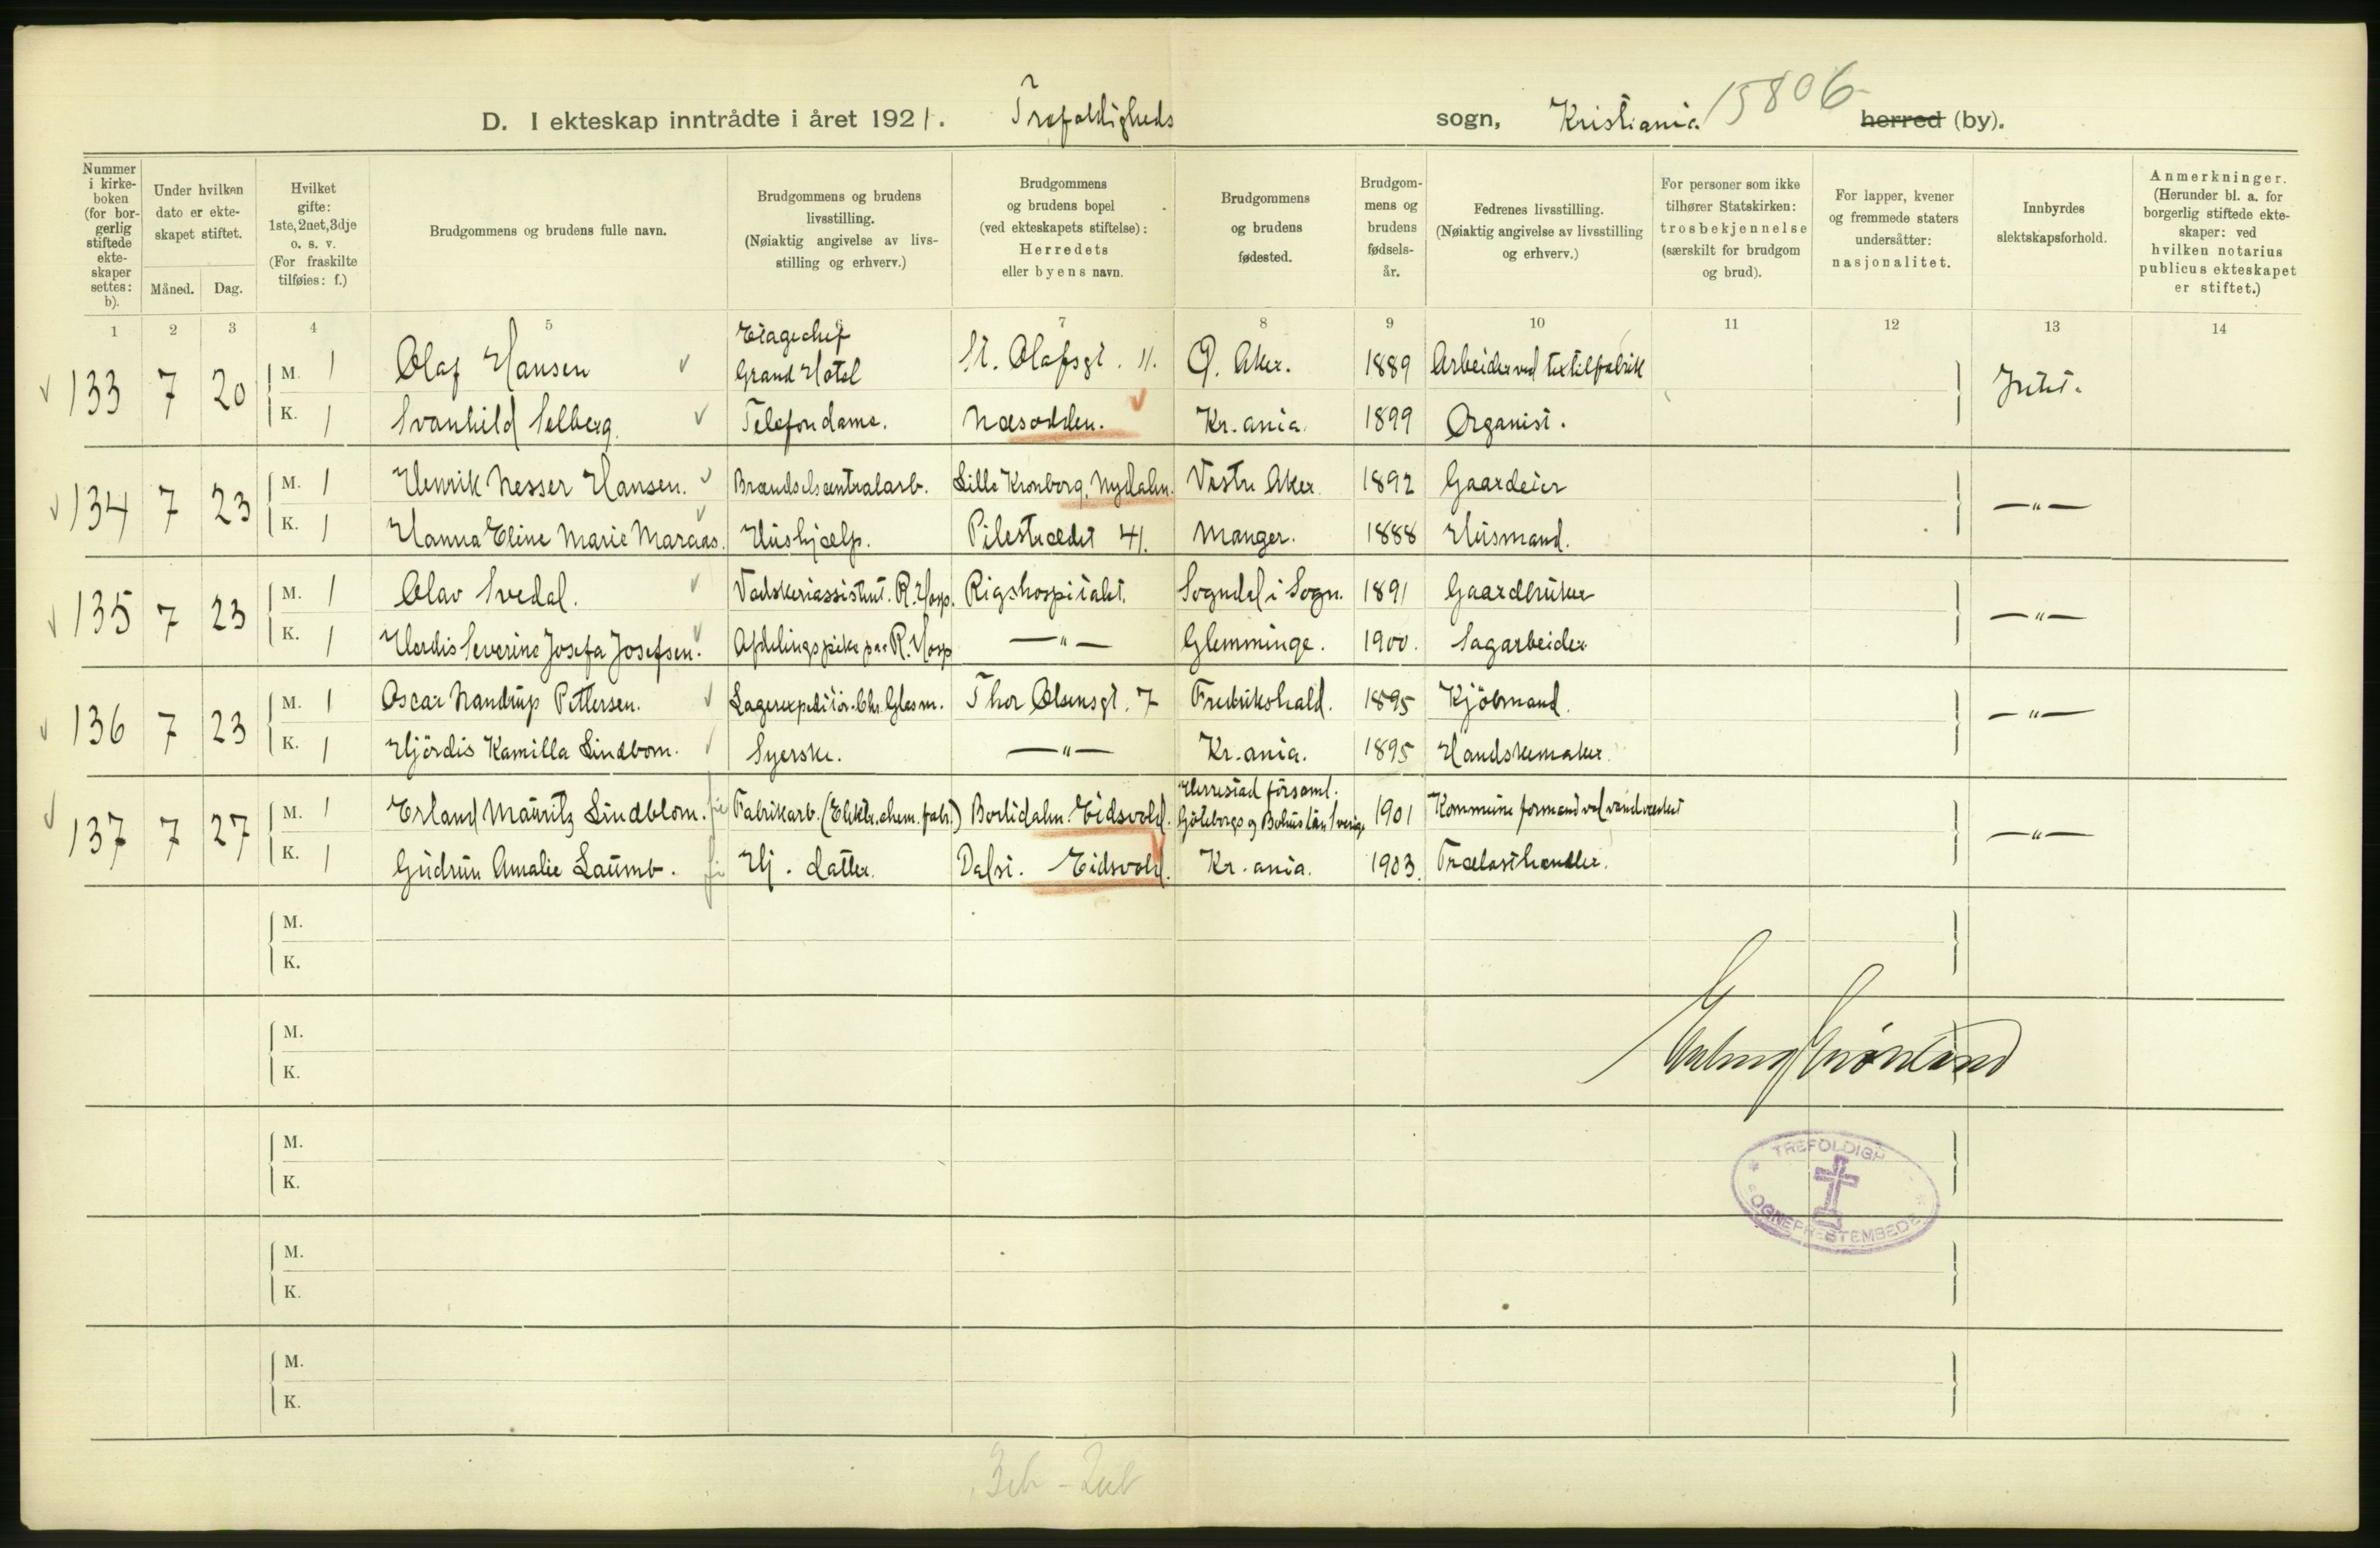 D. I ekteskap inntrådte i året 1921. Trefoldigheds sogn, Kristiania 15806 herred (by).
Nummer i kirke-boken (for bor-gerlig stiftede ekte-skaper settes: b).
Under hvilken dato er ekte-skapet stiftet.
Måned. Dag.
Hvilket gifte: 1ste, 2net, 3dje o. s. v. (For fraskilte tilføies: f.)
Brudgommens og brudens fulle navn.
Brudgommens og brudens livsstilling. (Nøiaktig angivelse av livs-stilling og erhverv.)
Brudgommens og brudens bopel (ved ekteskapets stiftelse): Herredets eller byens navn.
Brudgommens og brudens fødested.
Brudgom-mens og brudens fødsels-år.
Fedrenes livsstilling. (Nøiaktig angivelse av livsstilling og erhverv.)
For personer som ikke tilhører Statskirken: trosbekjennelse (særskilt for brudgom og brud).
For lapper, kvener og fremmede staters undersåtter: nasjonalitet.
Innbyrdes slektskapsforhold.
Anmerkninger. (Herunder bl. a. for borgerlig stiftede ekte-skaper: ved hvilken notarius publicus ekteskapet er stiftet.)
1 2 3 4 5 6 7 8 9 10 11 12 13 14
133 7 20 M. 1 Olaf Hansen Etagechef Grand Hotel St. Olafsgt. 11. Ø. Aker. 1889 Arbeider ved textilfabrik Intet.
K. 1 Svanhild Selberg. Telefondame. Næsodden. Kr.ania. 1899 Organist.
134 7 23 M. 1 Henrik Nesser Hansen. Brændselscentralarb. Lille Kronborg, Nydalen. Vestre Aker. 1892 Gaardeier —"—
K. 1 Hanna Eline Marie Maraas. Hushjælp. Pilestrædet 41. Manger. 1888 Husmand.
135 7 23 M. 1 Olav Svedal. Vadskeriassistent. R. Hosp. Rigshospitalet. Sogndal i Sogn. 1891 Gaardbruker —"—
K. 1 Herdis Severine Josefa Josefsen. Afdelingspike paa R. Hosp —"— Glemminge. 1900. Sagarbeider
136 7 23 M. 1 Oscar Nandrup Pettersen. Lagerexpeditör. Chr. Glasm. Thor Olsensgt. 7 Fredrikshald. 1895 Kjöbmand. —"—
K. 1 Hjördis Kamilla Lindbom. Syerske. —"— Kr.ania. 1895 Handskemaker.
137 7 27 M. 1 Erland Mauritz Lindblom. Fabrikarb. (Elektr. chem. fabr.) Borlidalen. Eidsvold. Herrestad församl. Göteborgs og Bohus län Sverige 1901 Kommune formand ved vandverket —"—
K. 1 Gudrun Amalie Laumb. Hj. datter. Dalsi. Eidsvold. Kr.ania. 1903. Trælasthandler.
M.
K.
M.
K.
M.
K.
M.
K.
M.
K.
TREFOLDIGH
OGNEPRESTEMBEDE